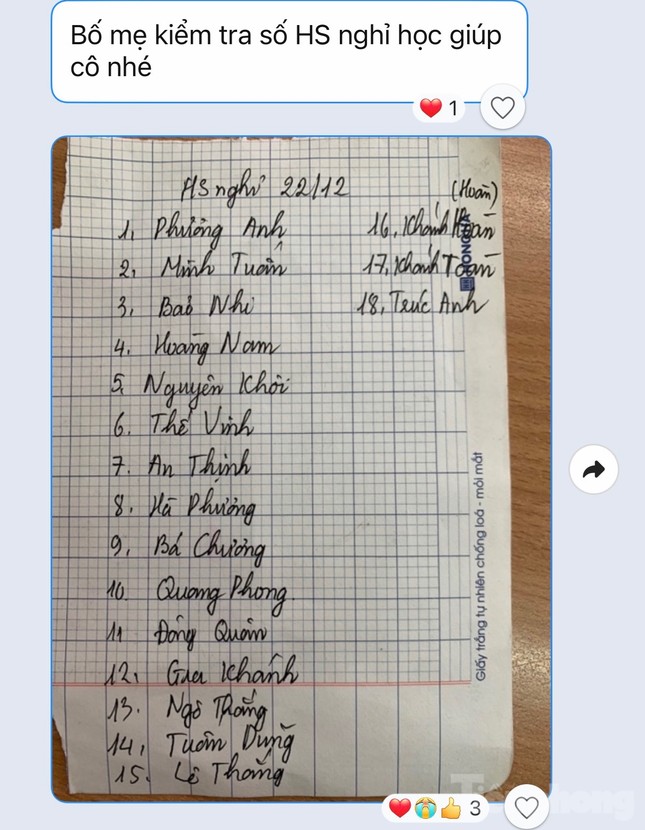 Bố mẹ kiểm tra số HS nghỉ học giúp
cô nhé
1
HS nghỉ 22/12
1, Phương Anh
2, Minh Tuấn
3, Bảo Nhi
4. Hoàng Nam
5. Nguyên Khôi
6. Thế Vinh
7. An Thịnh
8. Hà Phương
9, Bá Chương
10. Quang Phong
11 Đông Quân
12, Gia Khánh
13. Ngô Thắng
14, Tuấn Dũng
15. Lê Thắng
(Hoàn)
16, Khánh Hoàn
17, Khánh Toàn
18, Trúc Anh
HONGHA
Giấy trắng tự nhiên chống loá - mỏi mắt
3
Tiền Phong